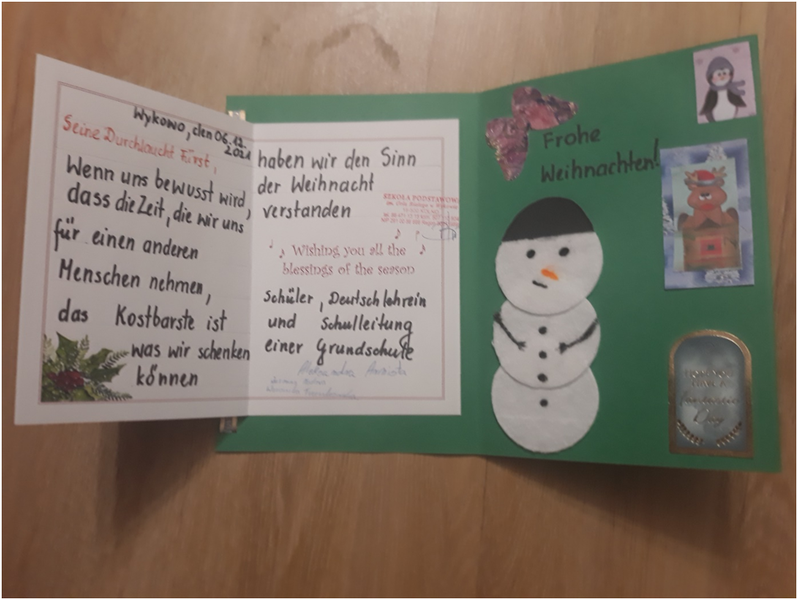 Wykowo, den 06.12.
2021
Seine Durchlaucht Fürst,
Wenn uns bewusst wird,
dass die Zeit, die wir uns
für einen anderen
Menschen nehmen,
das Kostbarste ist
was wir schenken
können
haben wir den Sinn
der Weihnacht
verstanden
SZKOŁA PODSTAWOWA
Wishing you all the
blessings of the season
Schüler, Deutschlehrein
und Schulleitung
einer Grundschule
Frohe
Weihnachten!
Day